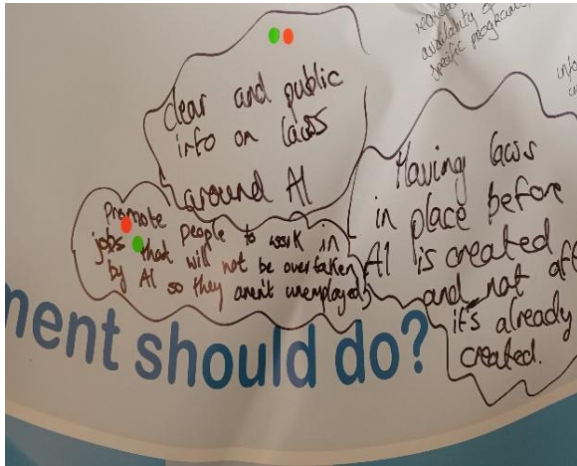 availability of
specific programs
clear and public
info on laws
around AI
Promote people to work in
jobs that will not be overtaken
by AI so they aren't unemployed
Having laws
in place before
AI is created
and not aft
it's already
created.
ment should do?